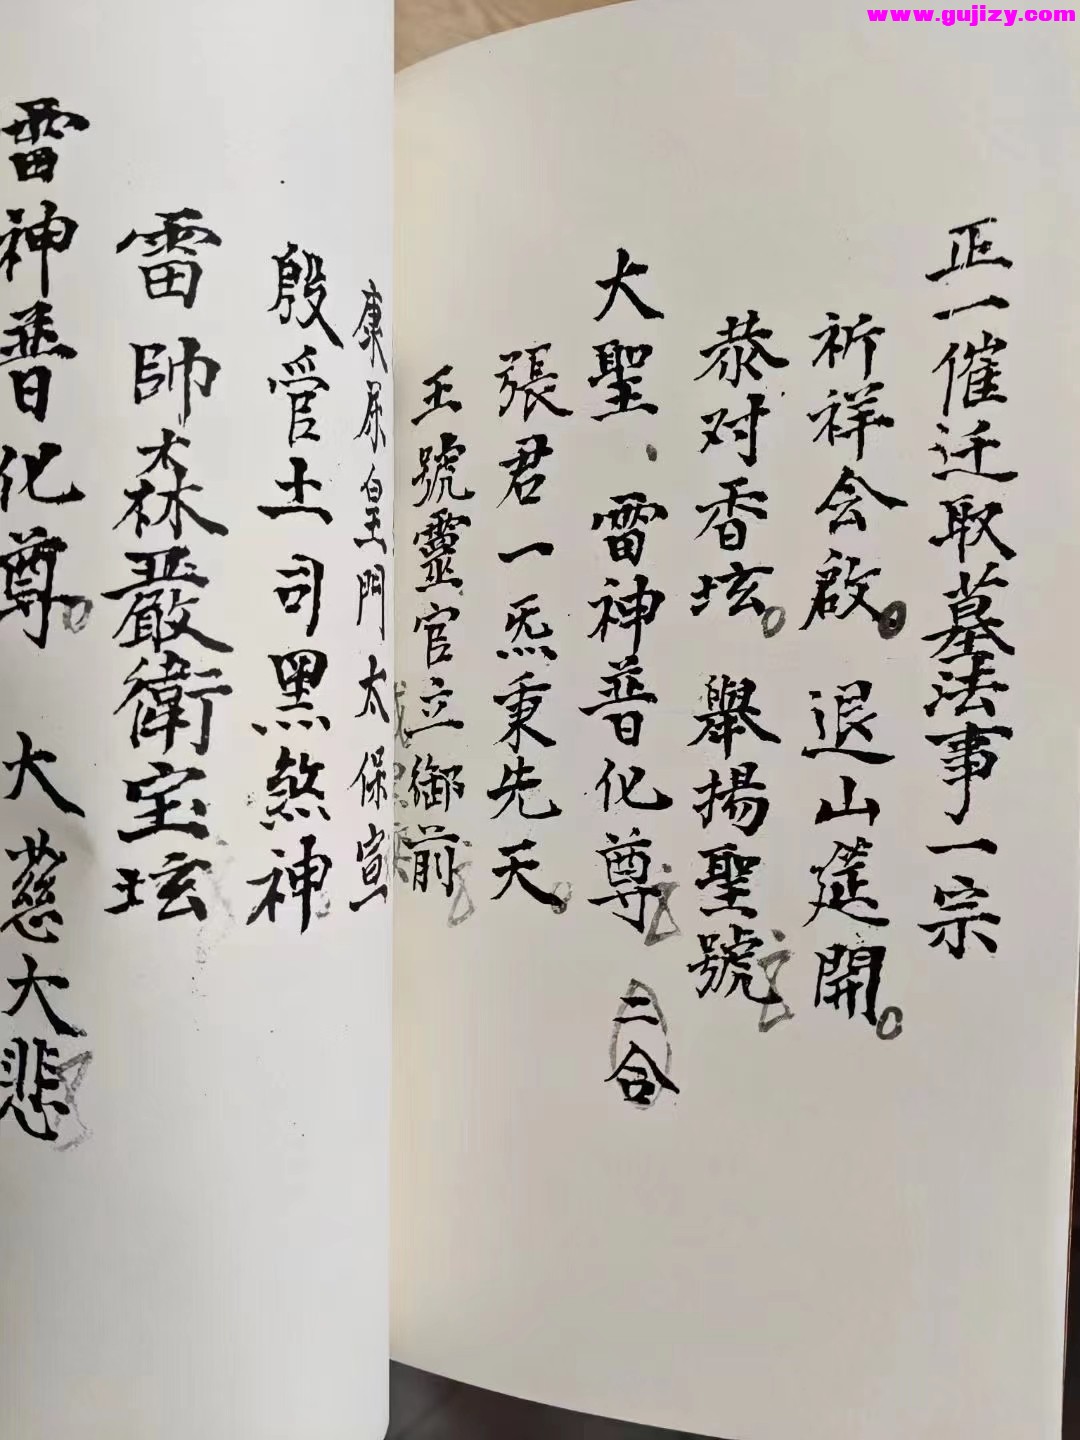 www.gujizy.com
正一催迁取墓法事一宗
祈祥会啟。退山筵開。
恭对香坛。舉揚聖號
大聖、雷神普化尊 二合
張君一炁秉先天。
王號靈官立御前
康 皇門太保宣
殷官土司黑煞神
雷帥森嚴衛宝坛
雷神普化尊。大慈大悲